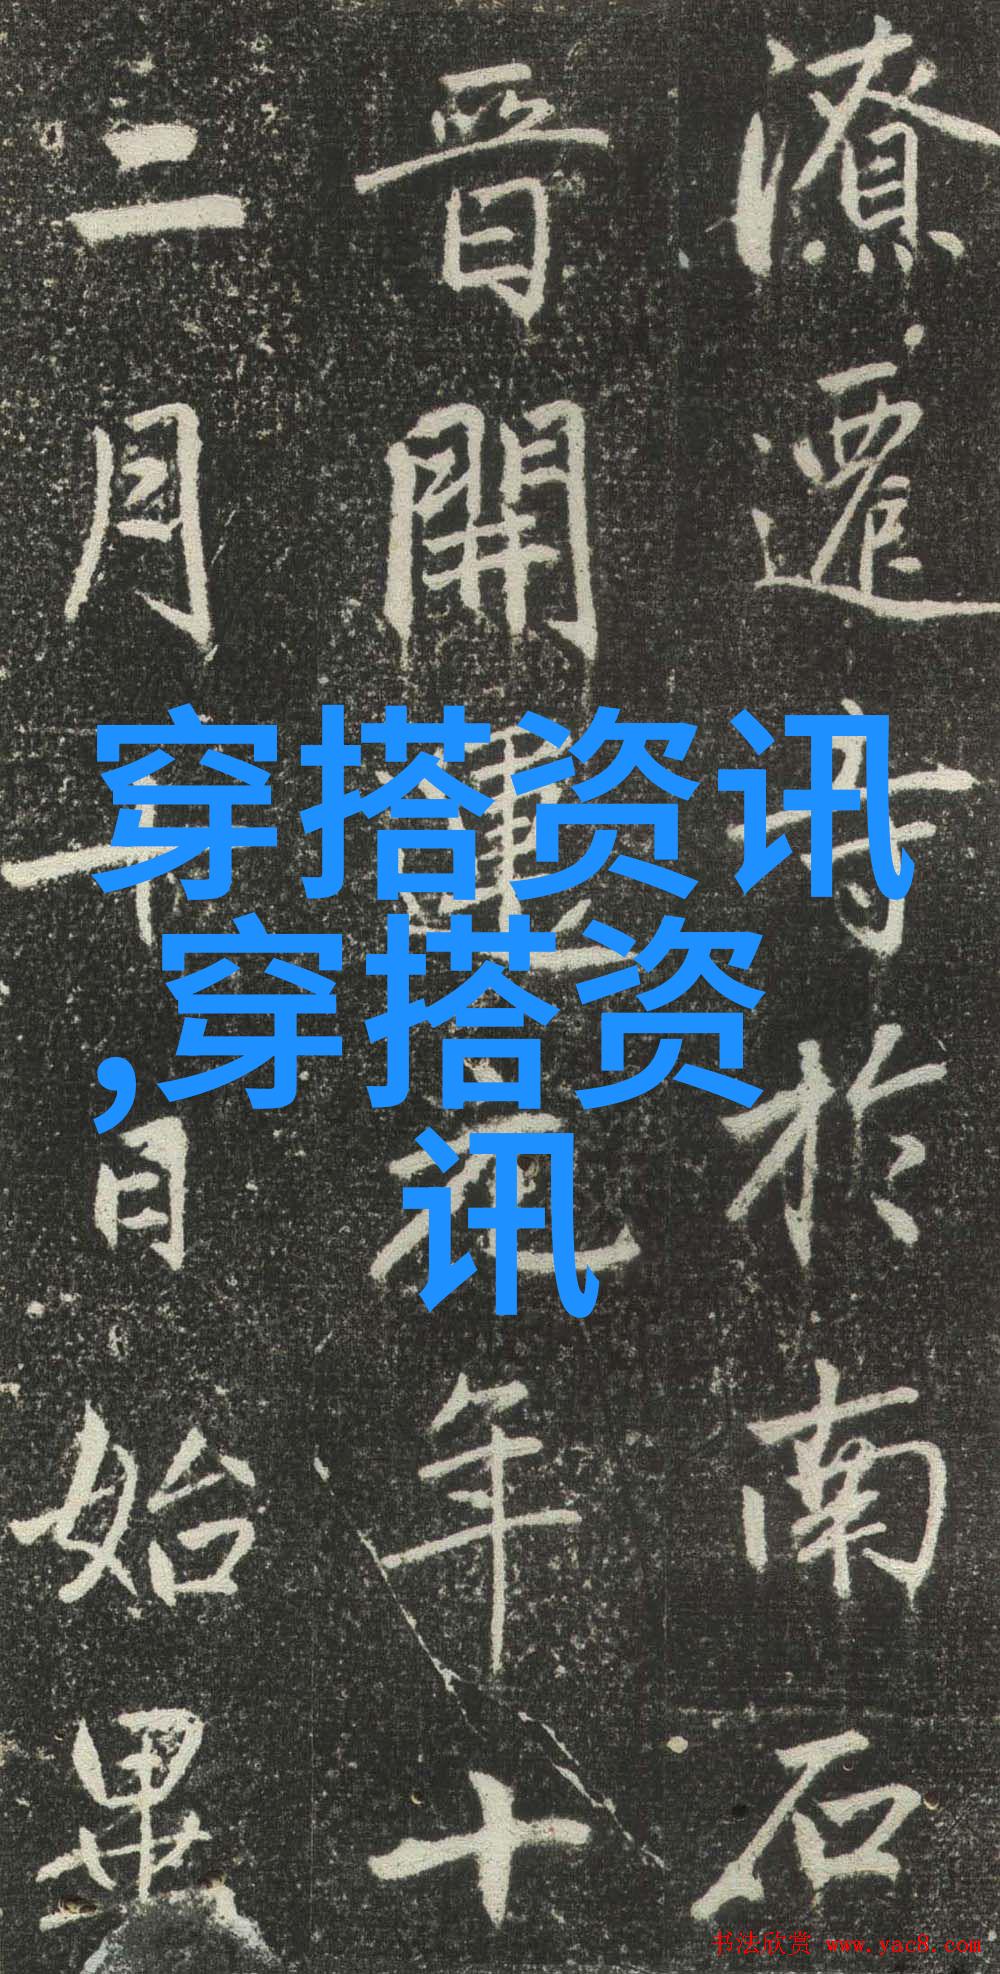 潦遷寺於南石
晉開運元年十
二月十日始畢
穿搭资讯
,穿搭资
讯
书法欣赏 www.yac8.com